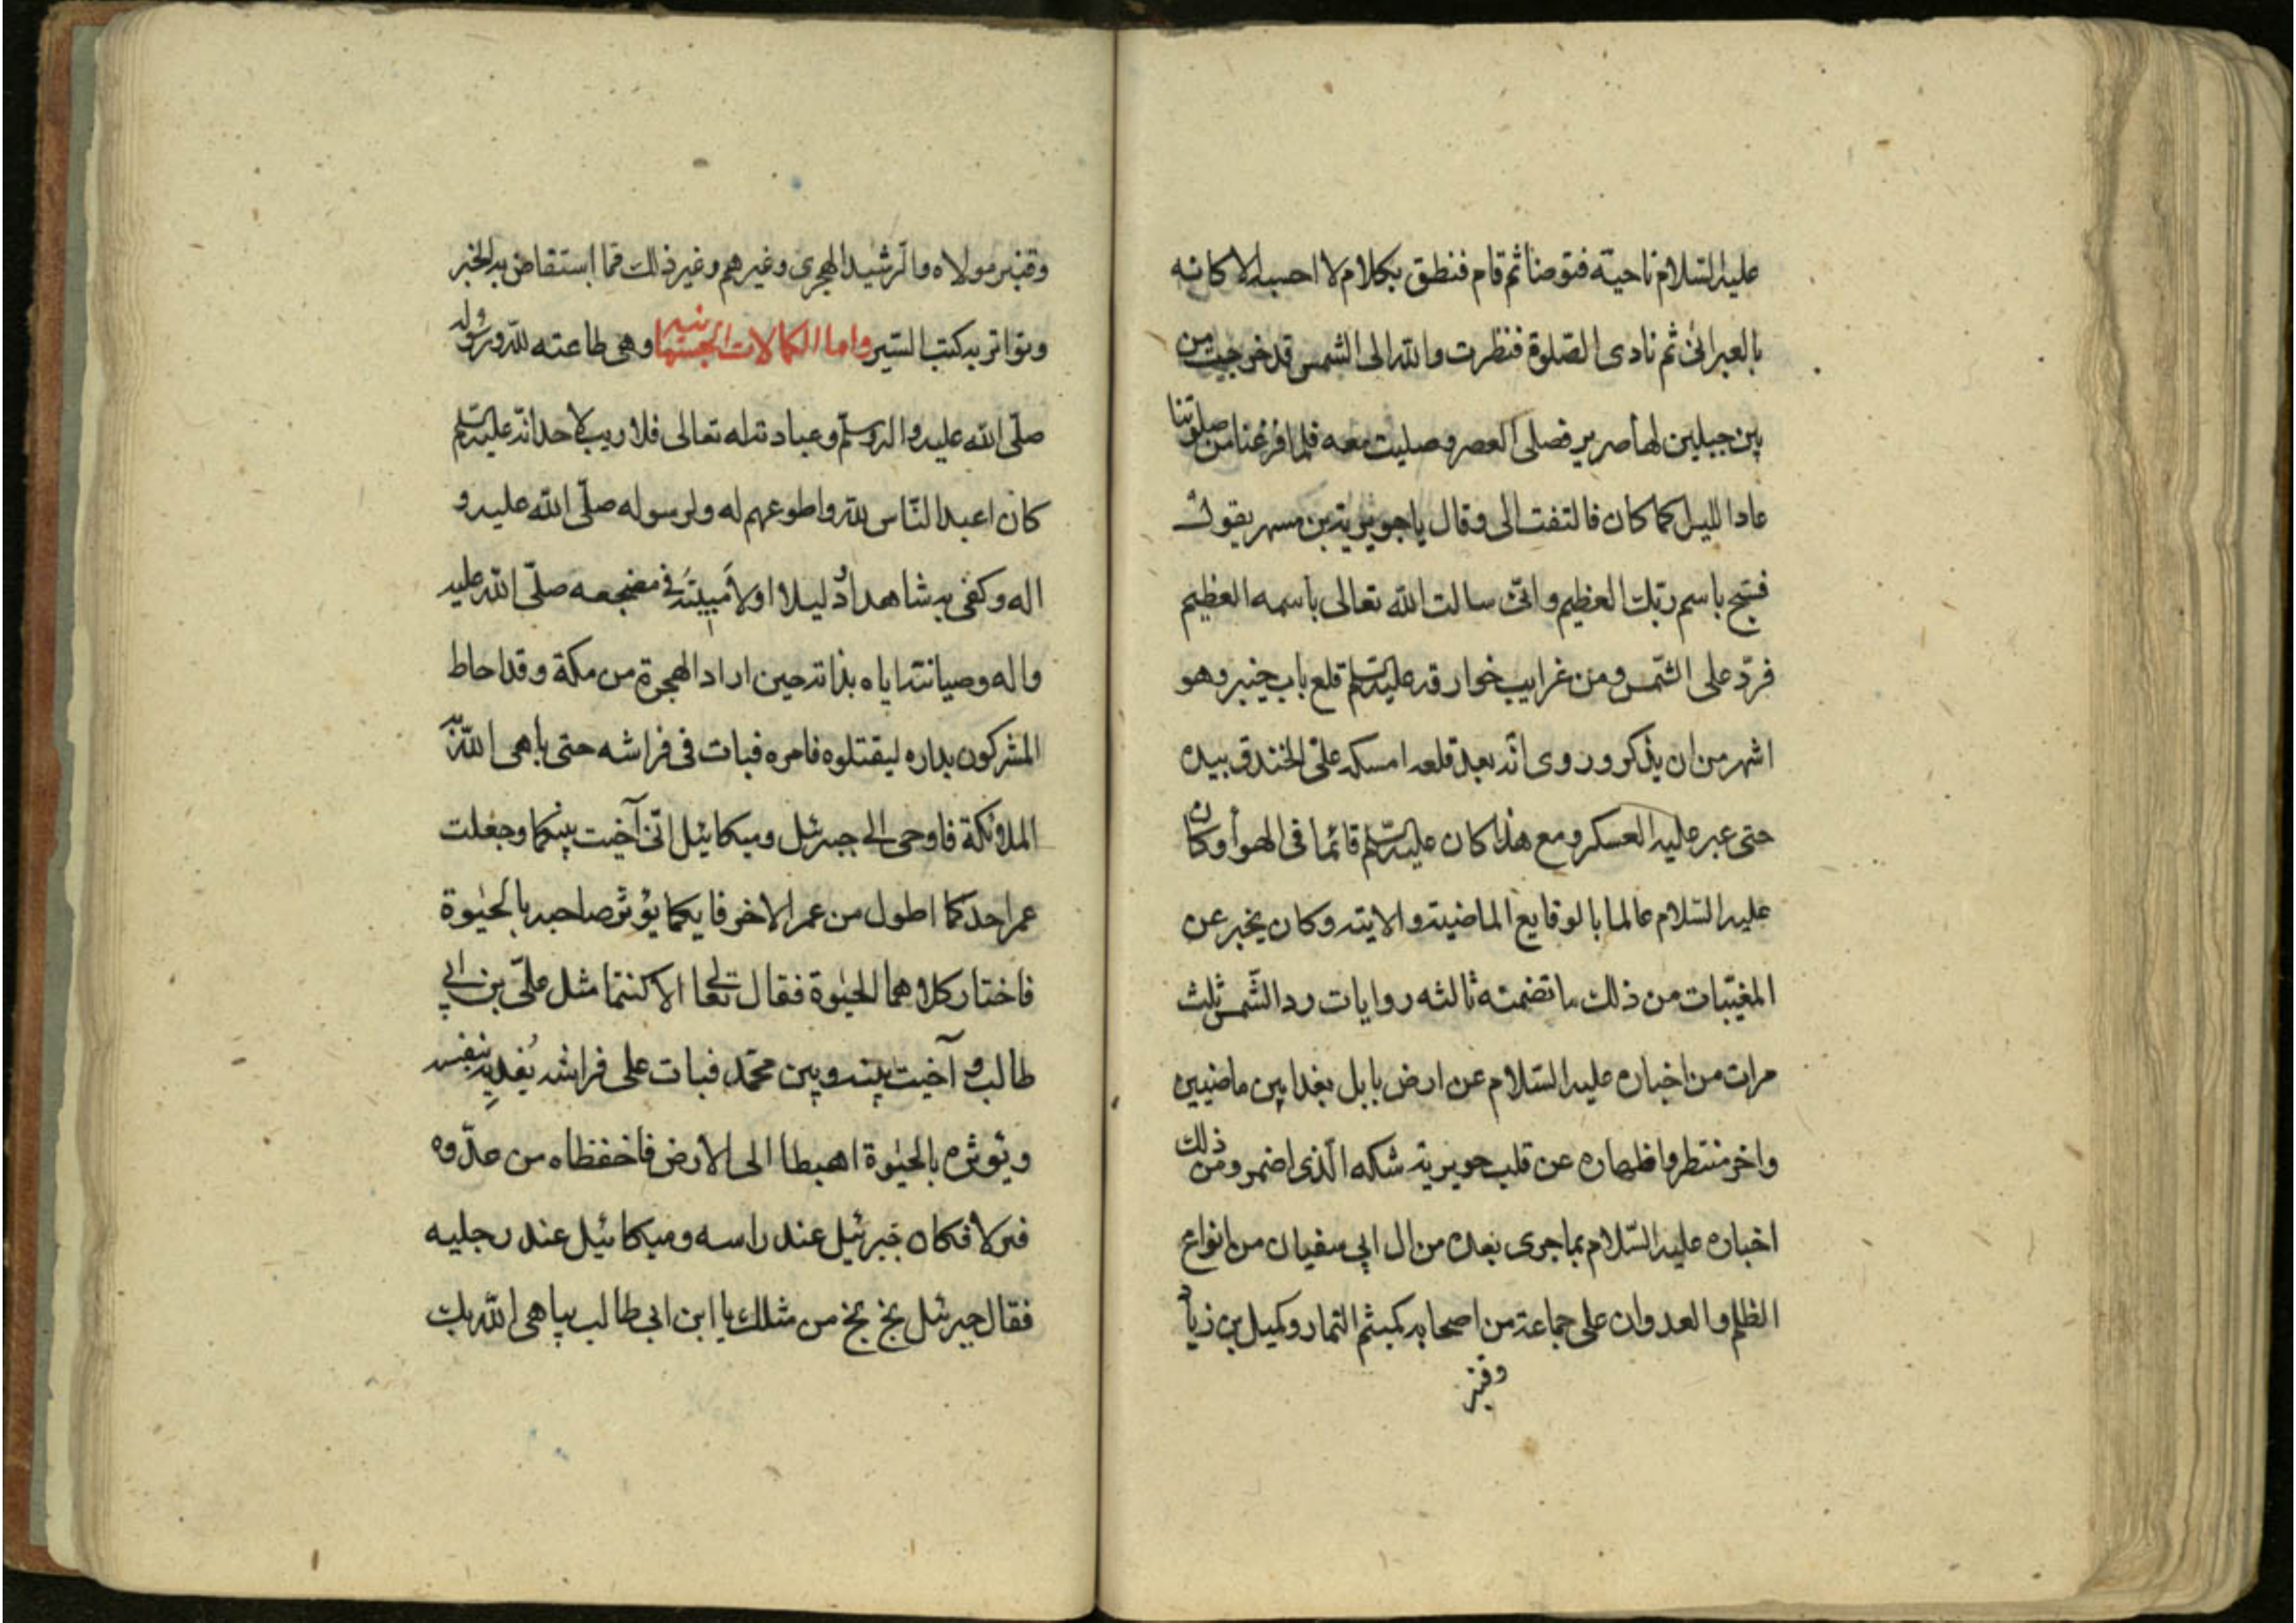 عليه السلام ناحية فتوضأ ثم قام فنطق بكلام لا احسبه الا كانه
بالعبراني ثم نادى الصلوة فنظرت والله الى الشمس قد خرجت من
بين جبلين لها صرير فصلى العصر وصليت معه فلما فرغنا من صلوتنا
عاد الليل كما كان فالتفت الى وقال يا جويرية بن مسهر يقول
فسبح باسم ربك العظيم وانى سالت الله تعالى باسمه العظيم
فرد على الشمس ومن غرايب خوارقه عليه السلم قلع باب خيبر وهو
اشهر من ان يذكر وروى انه بعد قلعه امسكه على الخندق بيده
حتى عبر عليه العسكر ومع هذا كان عليه السلم قائما فى الهوأ وكان
عليه السلام عالما بالوقايع الماضية والايته وكان يخبر عن
المغيبات من ذلك ما تضمنه ثالثه روايات رد الشمس ثلث
مرات من اخباره عليه السلام عن ارض بابل بعذابين ماضيين
واخر منتظر واظهاره عن قلب جويرية شكه الذى اضمر ومن ذلك
اخباره عليه السلام بما جرى بعده من ال ابي سفيان من انواع
الظلم والعدوان على جماعة من اصحابه كميثم التمار وكميل بن زياد
وقنبر
وقنبر مولاه والرشيد الهجرى وغيرهم وغير ذلك مما استفاض به الخبر
وتواتر به كتب السير واما الكمالات وهى طاعته لله ورسوله
صلى الله عليه واله وسلم وعبادته له تعالى فلا ريب لاحد انه عليه السلم
كان اعبد الناس لله واطوعهم له ولرسوله صلى الله عليه و
اله وكفى به شاهدا ودليلا اولا مبيته فى مضجعه صلى الله عليه
واله وصيانته اياه بذاته حين اراد الهجرة من مكة وقد احاط
المشركون بداره ليقتلوه فامره فبات فى فراشه حتى باهى الله به
الملائكة فاوحى الى جبرئيل وميكائيل انى آخيت بينكما وجعلت
عمر احدكما اطول من عمر الاخر فايكما يؤثر صاحبه بالحيوة
فاختار كلاهما الحيوة فقال تعالى الا كنتما مثل على بن ابي
طالب آخيت بينه وبين محمد فبات على فراشه يفديه بنفسه
ويوثره بالحيوة اهبطا الى الارض فاحفظاه من عدوه
فنزلا فكان جبرئيل عند راسه وميكائيل عند رجليه
فقال جبرئيل بخ بخ من مثلك يا ابن ابي طالب يباهى الله بك